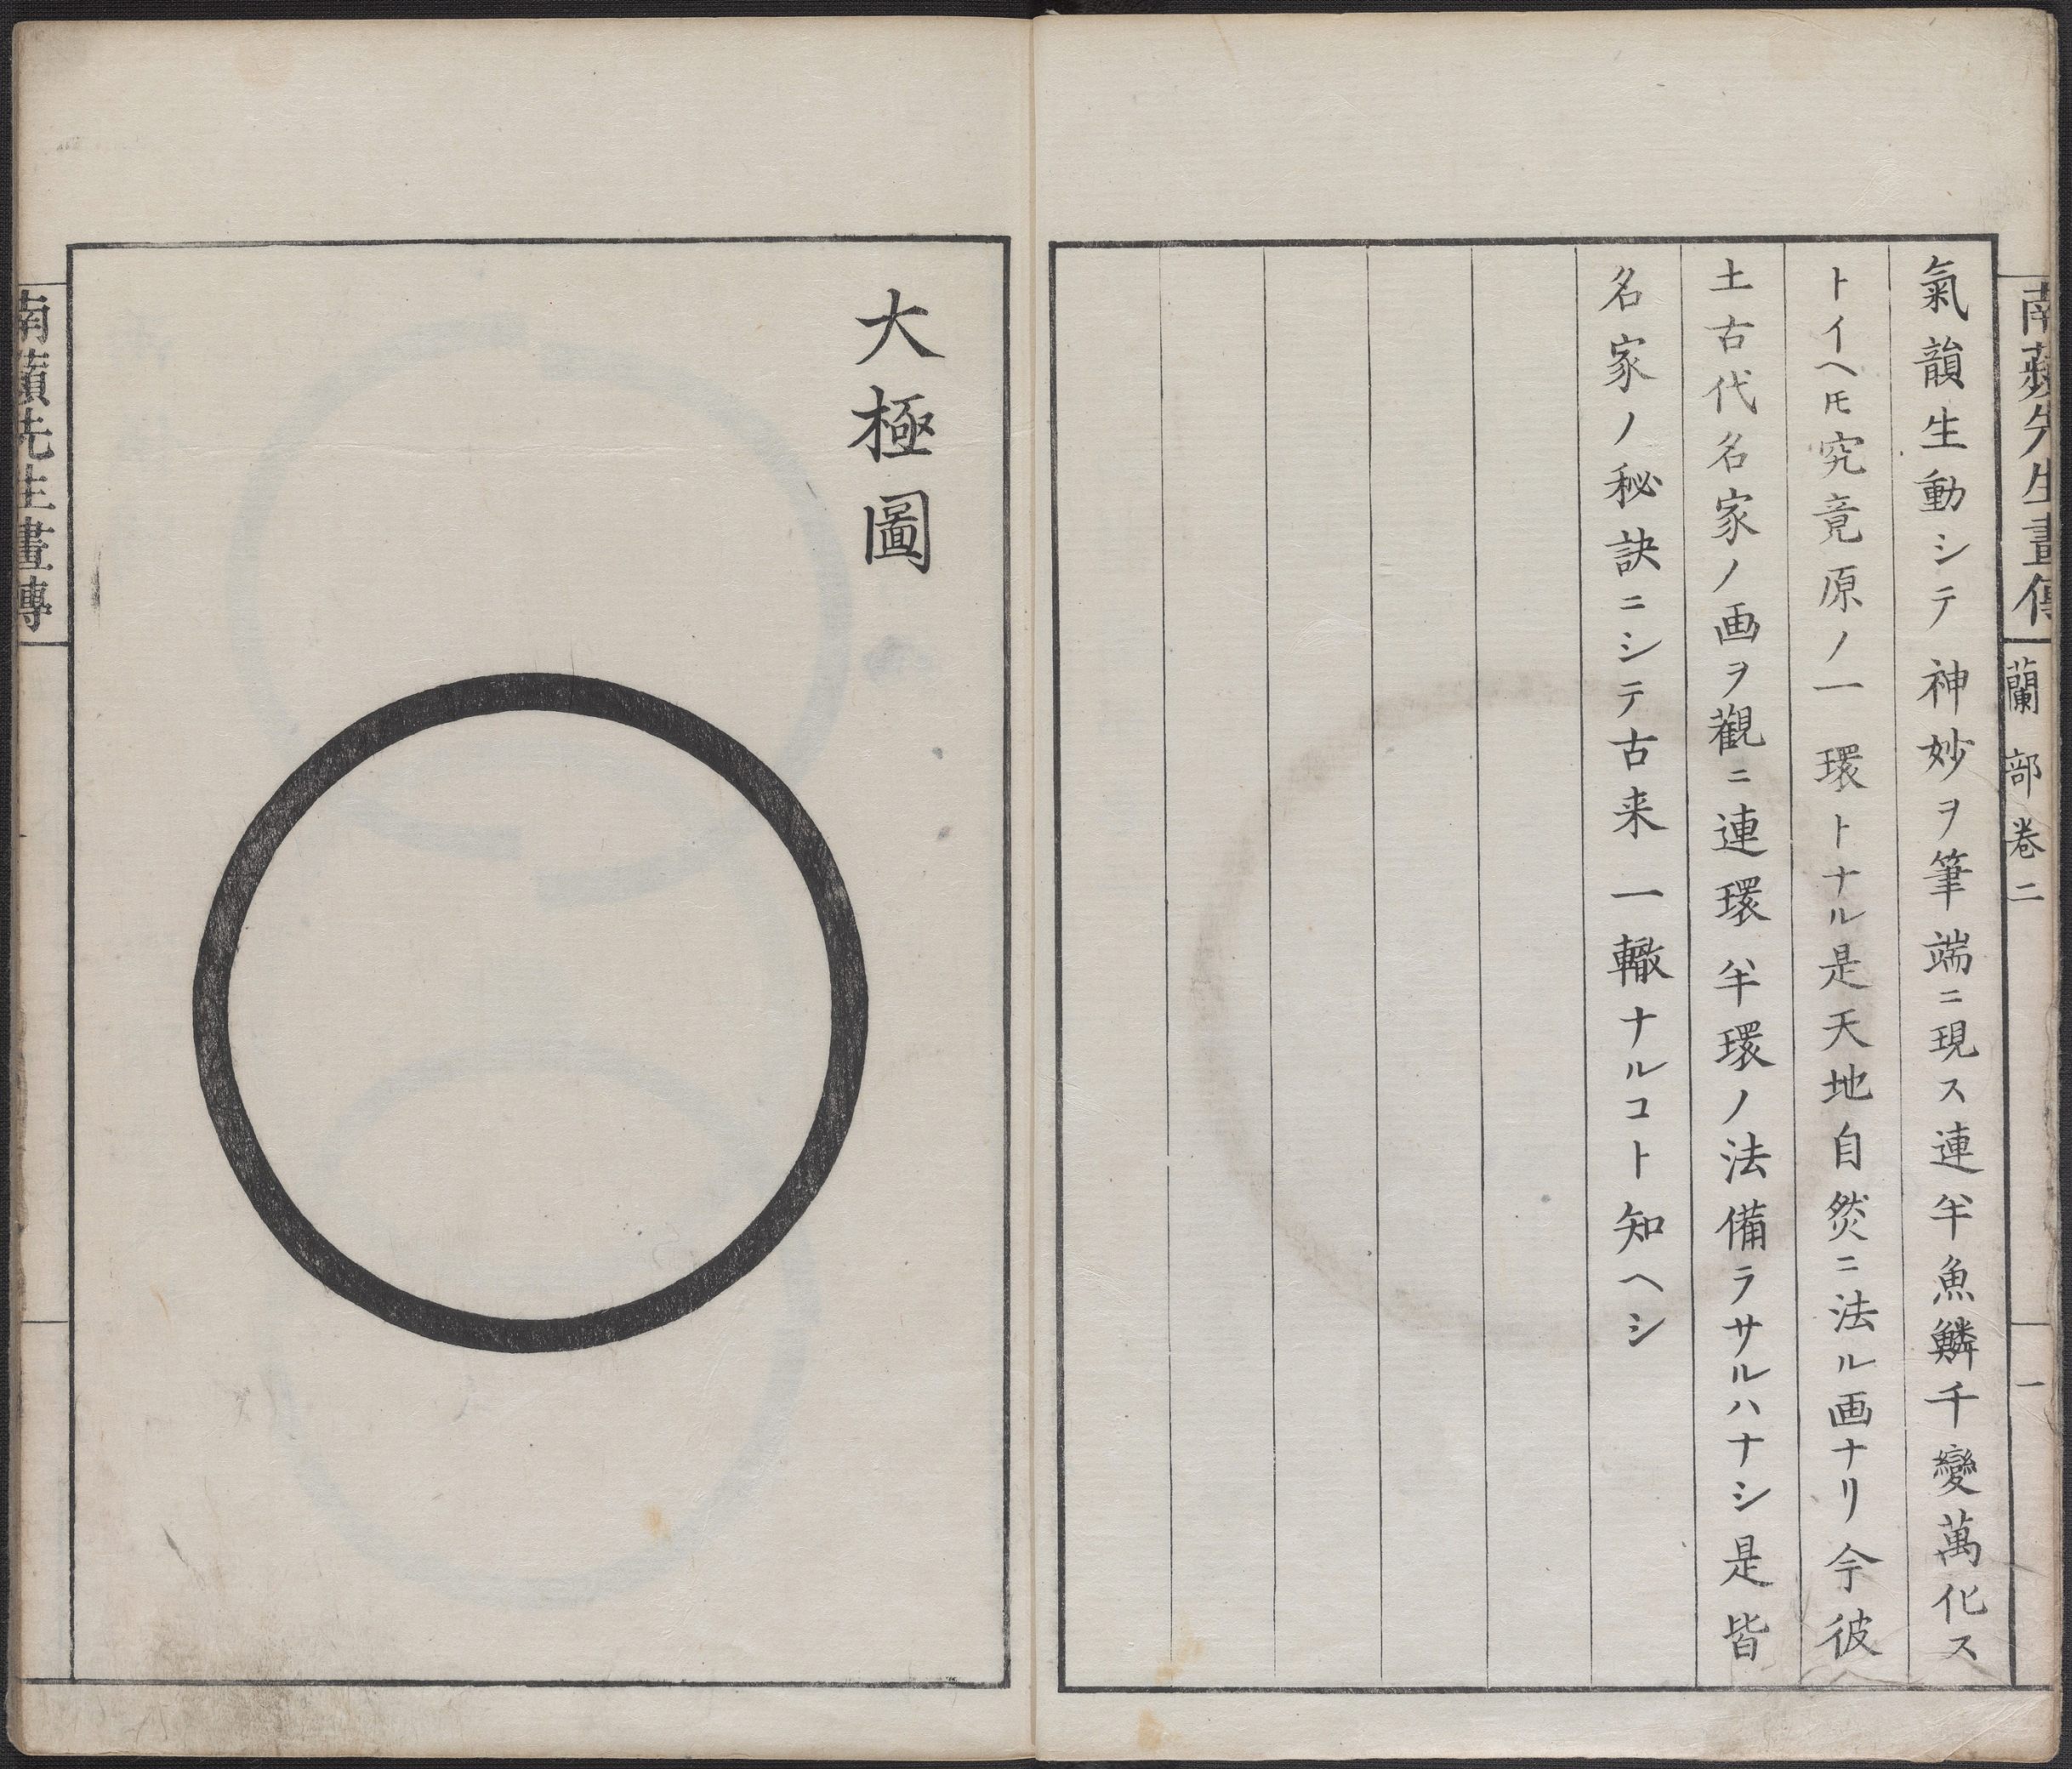 南蘋先生畫傳
蘭部卷二
一
氣韻生動シテ神妙ヲ筆端ニ現ス連半魚鱗千變萬化ス
トイヘ𪜈究竟原ノ一環トナル是天地自然ニ法ル画ナリ今彼
土古代名家ノ画ヲ觀ニ連環半環ノ法備ラサルハナシ是皆
名家ノ秘訣ニシテ古来一轍ナルコト知ヘシ
大極圖
南蘋先生畫傳